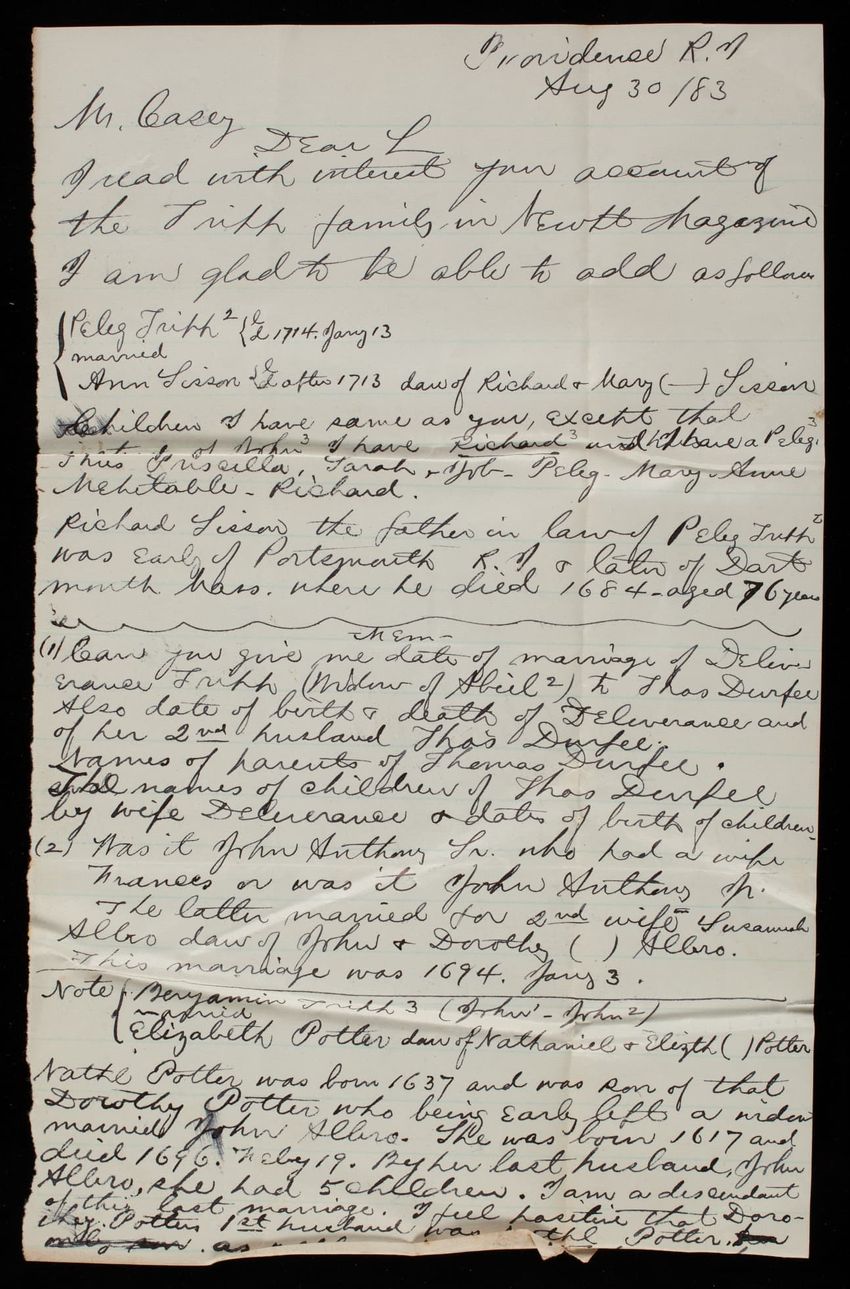 Providence R. I
Aug 30 / 83
Mr. Casey
Dear S
I read with interest your account of
the Tripp family in Newpt Magazine
I am glad to be able to add as follows
Peleg Tripp 2 { d 1714. Jany 13
married
Ann Sisson d after 1713 dau of Richard & Mary ( — ) Sisson
Children I have same as you, except that
of John 3 I have Richard 3 and have a Peleg 3
thus Priscilla, Sarah, Job - Peleg - Mary - Anne
Mehitable - Richard.
Richard Sisson the father in law of Peleg Tripp 2
was early of Portsmouth R. I & later of Dart
mouth Mass. where he died 1684 - aged 76 years
Mem -
(1) Can you give me date of marriage of Deliv
erance Tripp (Widow of Abiel 2) to Thos Durfee
Also date of birth & death of Deliverance and
of her 2nd husband Thos Durfee.
Names of parents of Thomas Durfee.
The names of children of Thos Durfee
by wife Deliverance & dates of birth of children -
(2) Was it John Anthony Sr. who had a wife
Frances or was it John Anthony Jr.
The latter married for 2nd wife Susannah
Albro dau of John & Dorothy ( ) Albro.
This marriage was 1694. Jany 3.
Note { Benjamin Tripp 3 (John 1 - John 2)
married
Elizabeth Potter dau of Nathaniel & Elizth ( ) Potter
Nathl Potter was born 1637 and was son of that
Dorothy Potter who being early left a widow
married John Albro. She was born 1617 and
died 1696. Feby 19. By her last husband, John
Albro, she had 5 children. I am a descendant
of this last marriage. I feel positive that Doro-
thy Potters 1st husband was the Potter.
as